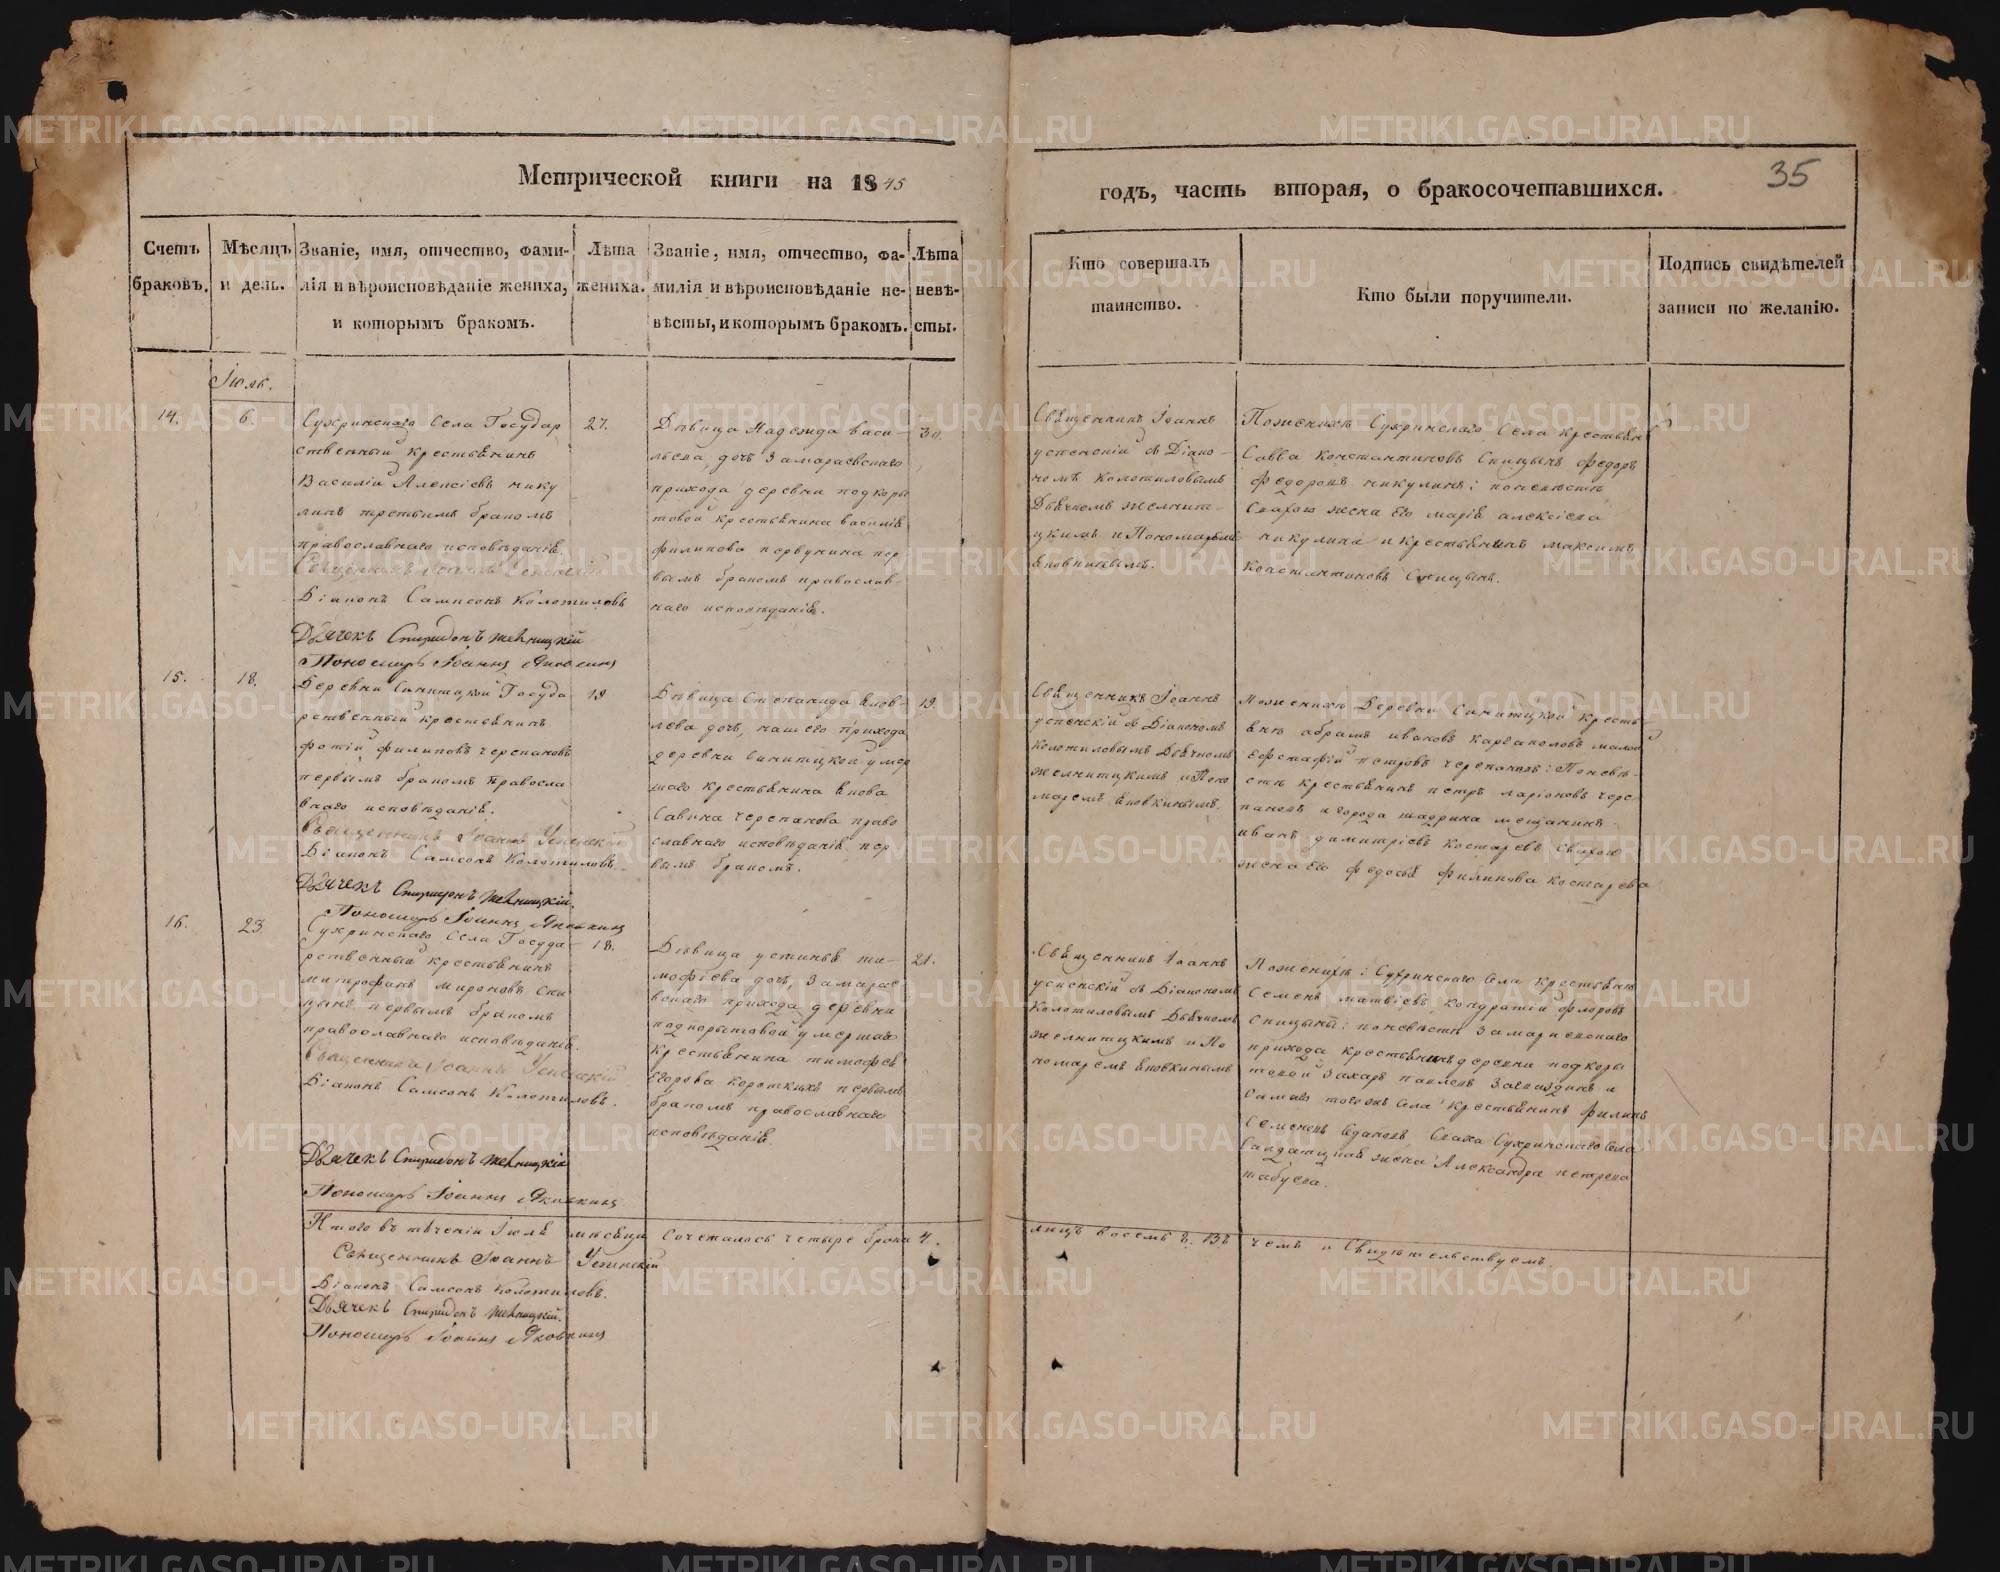 Метрической книги на 1845
годъ, часть вторая, о бракосочетавшихся.
35
Счетъ браковъ.
Мѣсяцъ и день.
Званіе, имя, отчество, фами-
лія и вѣроисповѣданіе жениха,
и которымъ бракомъ.
Лѣта жениха.
Званіе, имя, отчество, фа-
милія и вѣроисповѣданіе не-
вѣсты, и которымъ бракомъ.
Лѣта невѣ-
сты.
Кто совершалъ
таинство.
Кто были поручители.
Подпись свидѣтелей
записи по желанію.
Іюль.
14.
6.
Сухринскаго Села Государ
ственный крестьянинъ
Василій Алексіевъ нику
линъ третьимъ бракомъ
православнаго исповѣданія.
Священникъ Іоаннъ Успенскій
Діаконъ Сампсонъ Колотиловъ
Дьячекъ Спиридонъ Желницкій
Пономарь Іоаннъ Яковкинъ
27.
Дѣвица Надежда васи-
льева дочь Замараевскаго
прихода деревни подкоры
товой крестьянина василія
филипова первунина пер
вымъ бракомъ православ-
наго исповѣданія.
30.
Священникъ Іоаннъ
успенскій съ Діако-
номъ Колотиловымъ
Дьячкомъ желниц-
кимъ и Пономаремъ
яковкинымъ.
Поженихѣ Сухринскаго Села крестьяне
Савва константиновъ Спицынъ федоръ
федоровъ никулинъ: поневѣстѣ
Свахою жена его марія алексіева
никулина и крестьянинъ максимъ
константиновъ Спицынъ.
15.
18.
Деревни Синицкой Госуда
рственный крестьянинъ
фотій филиповъ черепановъ
первымъ бракомъ правосла
внаго исповѣданія.
Священникъ Іоаннъ Успенскій
Діаконъ Самсонъ Колотиловъ.
Дьячекъ Спиридонъ Желницкій.
Пономарь Іоаннъ Яковкинъ
19
Дѣвица Степанида яков-
лева дочь, нашего прихода
деревни Синицкой умер
шаго крестьянина якова
Савина черепанова право
славнаго исповѣданія пер
вымъ бракомъ.
19.
Священникъ Іоаннъ
успенскій съ Діакономъ
Колотиловымъ Дьячкомъ
желницкимъ и Поно
маремъ яковкинымъ.
Поженихѣ Деревни Синицкой кресть-
яне абрамъ ивановъ каргаполовъ
Ефстафій петровъ черепановъ: Поневѣ-
стѣ крестьянинъ петръ ларіоновъ чере
пановъ и города шадрина мещанинъ
иванъ димитріевъ костаревъ Свахою
жена его федосья филипова костарева
16.
23.
Сухринскаго Села Госуда
рственный крестьянинъ
митрофанъ мироновъ Спи
цынъ первымъ бракомъ
православнаго исповѣданія.
Священникъ Іоаннъ Успенскій
Діаконъ Самсонъ Колотиловъ.
Дьячекъ Спиридонъ Желницкій
Пономарь Іоаннъ Яковкинъ
18.
Дѣвица устинья ти-
мофіева дочь, Замарае
вскаго прихода деревни
подкорытовой умершаго
крестьянина тимофея
Егорова короткихъ первымъ
бракомъ православнаго
исповѣданія.
21.
Священникъ Іоаннъ
успенскій съ Діакономъ
Колотиловымъ Дьячкомъ
желницкимъ и По
номаремъ яковкинымъ
Поженихѣ: Сухринскаго Села крестьяне
Семенъ матвіевъ кондратій флоровъ
Спицыны: поневѣстѣ Замараевскаго
прихода крестьянинъ деревни подкоры
товой Захаръ павловъ и
Самаго тогожъ Села крестьянинъ филипъ
Семеновъ Сваха Сухринскаго Села
Салдатцкая жена Александра петрова
табуева.
Итого въ теченіи Іюля мѣсяца Сочеталось четыре брака 4.
лицъ восемь 8. Въ чемъ и Свидѣтельствуемъ.
Священникъ Іоаннъ Успенскій
Діаконъ Самсонъ Колотиловъ.
Дьячекъ Спиридонъ Желницкій.
Пономарь Іоаннъ Яковкинъ
METRIKI.GASO-URAL.RU